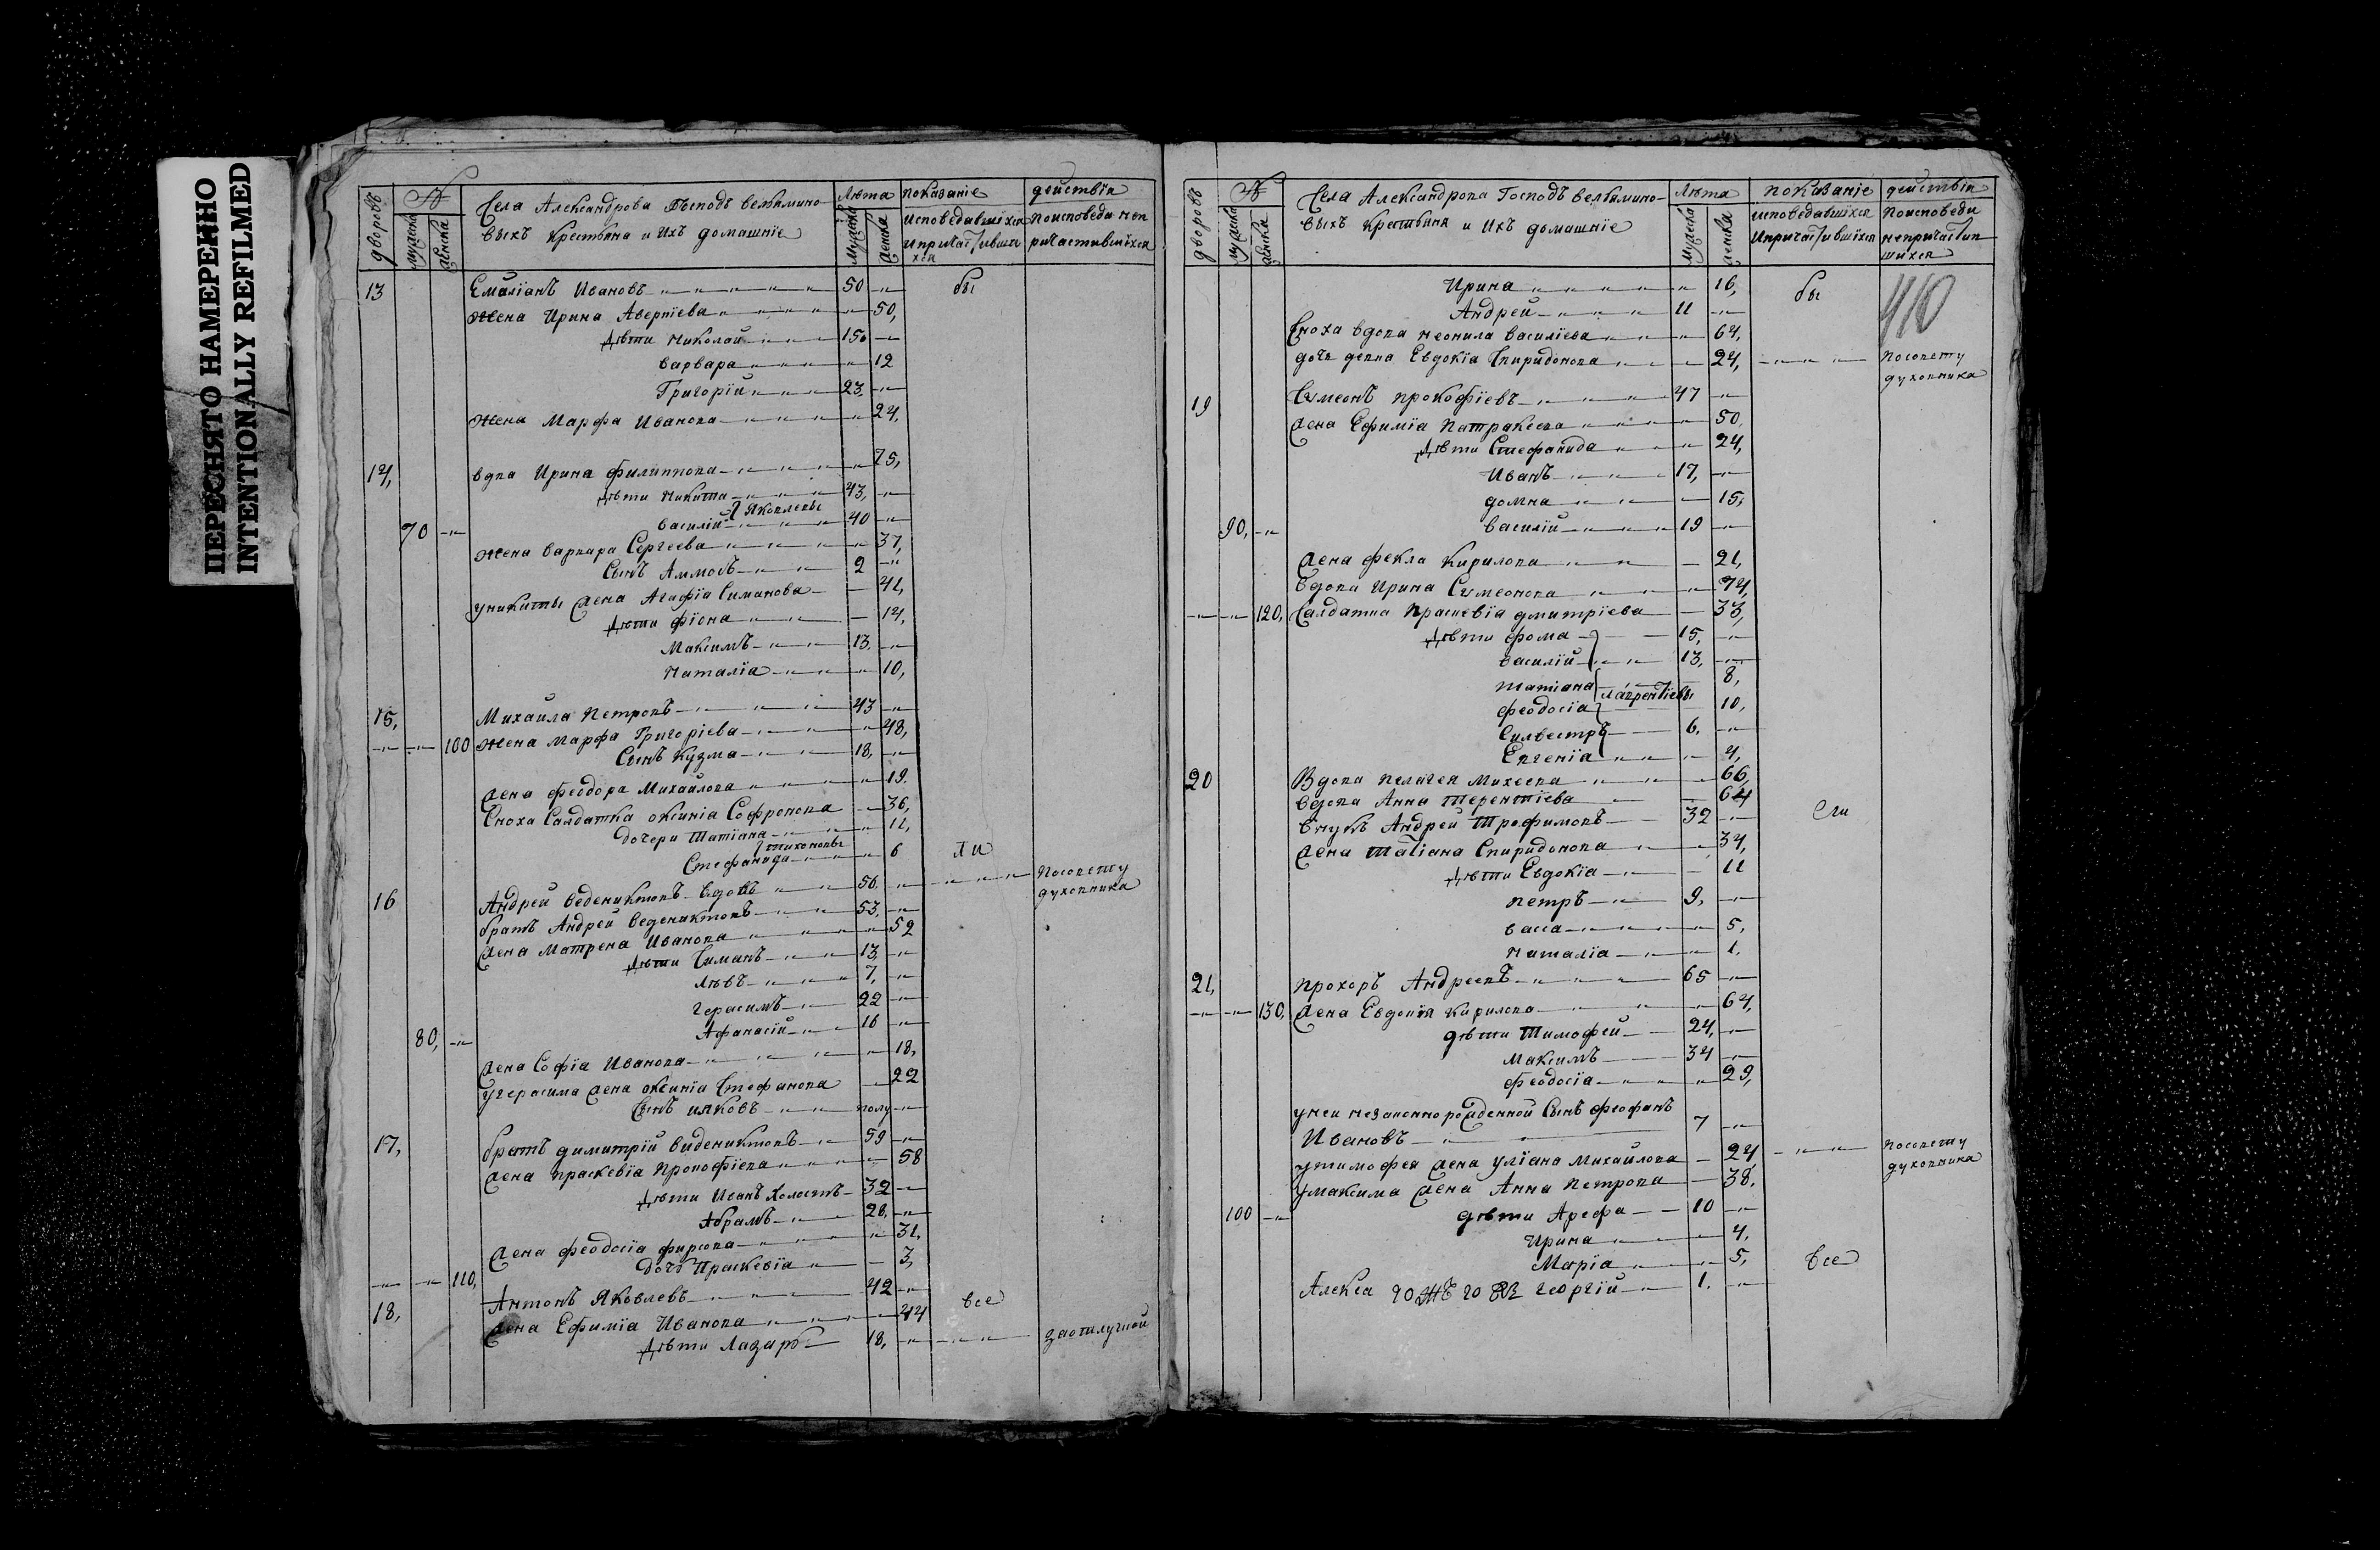 ПЕРЕСНЯТО НАМЕРЕННО
INTENTIONALLY REFILMED
дворовъ № мужска женска Села Александрова Господъ вельямино- Лѣта показаніе действія
выхъ крестьяна и ихъ домашніе мужска женска исповедавшихся и причастившихся по исповеди непричастившихся
13 Емеліанъ Ивановъ 50 бы
жена Ирина Аверпіева 50,
дѣти Николай 15,
варвара 12
Григорій 23,
жена Марфа Иванопа 24,
14, вдпа Ирина филиппопа 75,
дѣти Никита 43,
Якоплепы
70 василій 40
жена варпара Сергеева 37,
Сынъ Аммосъ 2
у никиты жена Агафіа Симанова 41,
дѣти фіона 14,
Максимъ 13,
Наталіа 10,
15, Михаила Петропъ 43
100 жена марфа Григоріева 48,
Сынъ Кузма 18,
жена феодора Михаилопа 19.
Сноха Салдатка оксиніа Софронопа 36,
дочери Татіана 11,
тихонопы
Стефанида 6 ли
16 Андрей Веденихтопъ вдопъ 56, по сопету
духопника
братъ Андрей веденихтопъ 53,
жена матрена Иванопа 52
дѣти Симанъ 13,
лѣвъ 7,
герасимъ 22
80, Афанасій 16
жена Софіа Иванопа 18,
у герасима жена оксиніа Стефанопа 22
Сынъ ияковъ полу
17, братъ димитрій виденихтопъ 59
жена праскевіа прокофіепа 58
дѣти Иванъ холостъ 32
Абрамъ 28,
жена феодосіа фирсопа 31,
110, дочь Праскевіа 3,
18, Антонъ Яковлевъ 42 все
жена Ефиміа Иванопа 44
дѣти Лазарь 18, за отлучкой
дворовъ № мужска женска Села Александропа Господъ вельямино- Лѣта показаніе действія
выхъ крестьяня и ихъ домашніе мужска женска исповедавшихся и причастившихся по исповеди непричастипшихся
410
Ирина 16, бы
Андрей 11
Сноха вдопа неонила василіева 64,
дочь депка Евдокіа Спиридонопа 24, по сопету
духопника
19 Сѵмеонъ прокофіевъ 47
жена Ефиміа Патракеепа 50,
дѣти Стефанида 24,
Иванъ 17,
домна 15,
90, василій 19
жена фекла Кирилопа 21,
вдопа Ирина Сѵмеонопа 74,
120, Салдатка Праскевіа дмитріева 33,
дѣти фома 15,
василій 13,
татіана 8,
лапрентіевы
феодосіа 10,
Силвестръ 6,
Епгеніа 4,
20 Вдопа пелагея Михеепа 66,
вдопа Анна терентіева 64
внукъ Андрей трофимопъ 32 сли
жена татіана Спиридонопа 34,
дѣти Евдокіа 11
петръ 9,
васса 5,
наталіа 1.
21, прохоръ Андреепъ 65
130, жена Евдокіа Кирилопа 64,
дѣти Тимофей 24,
максимъ 34
феодосіа 29,
у неи незаконно рожденной Сынъ феофанъ
Ивановъ 7
у тимофея жена уліана михайлопа 24 по сопету
духопника
у максима жена Анна петропа 38.
100 дѣти Арефа 10
Ирина 4,
Маріа 5, все
Алекса георгій 1.